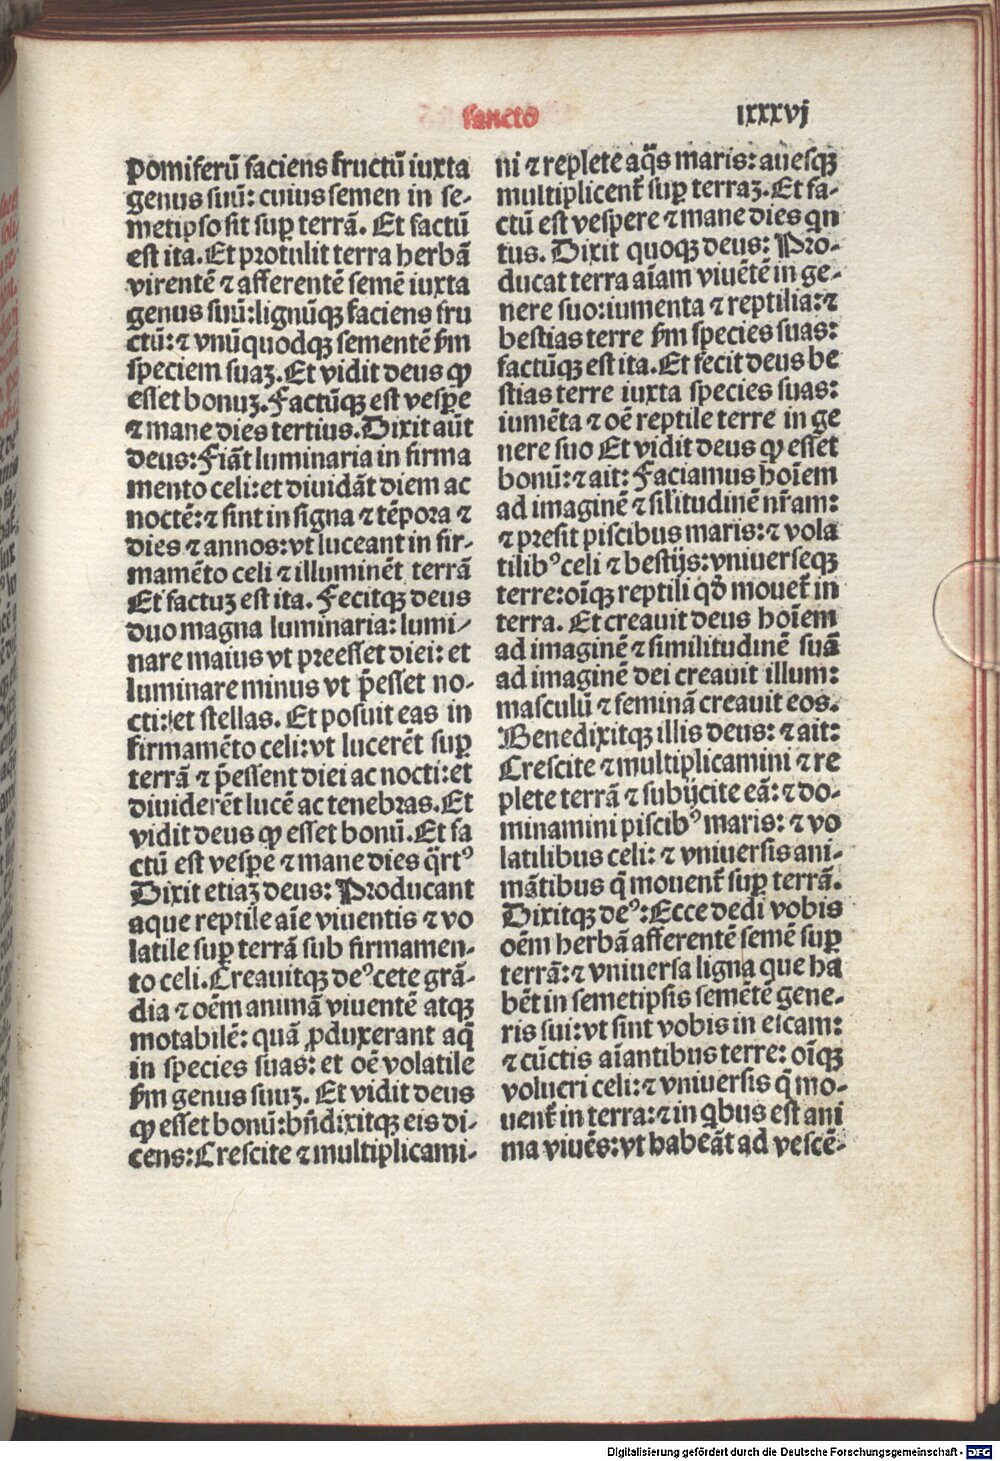 sancto
lxxxvj
pomiferū faciens fructū iuxta
genus suū: cuius semen in se-
metipso sit suꝑ terrā. Et factū
est ita. Et protulit terra herbā
virentē ⁊ afferentē semē iuxta
genus suū: lignūqꝫ faciens fru
ctū: ⁊ vnūquodqꝫ sementē ẜm
speciem suaꝫ. Et vidit deus ꝙ
esset bonuꝫ. Factūqꝫ est vesꝑe
⁊ mane dies tertius. Dixit aūt
deus: Fiāt luminaria in firma
mento celi: et diuidāt diem ac
noctē: ⁊ sint in signa ⁊ tēpora ⁊
dies ⁊ annos: vt luceant in fir-
mamēto celi ⁊ illuminēt terrā
Et factuꝫ est ita. Fecitqꝫ deus
duo magna luminaria: lumi/
nare maius vt preesset diei: et
luminare minus vt p̄esset no-
cti: et stellas. Et posuit eas in
firmamēto celi: vt lucerēt suꝑ
terrā ⁊ p̄essent diei ac nocti: et
diuiderēt lucē ac tenebras. Et
vidit deus ꝙ esset bonū. Et fa
ctū est vesꝑe ⁊ mane dies q̈rtꝰ
Dixit etiaꝫ deus: Producant
aque reptile aīe viuentis ⁊ vo
latile suꝑ terrā sub firmamen-
to celi. Creauitqꝫ deꝰ cete grā-
dia ⁊ oēm animā viuentē atqꝫ
motabilē: quā ꝓduxerant aq̄
in species suas: et oē volatile
ẜm genus suuꝫ. Et vidit deus
ꝙ esset bonū: bn̄dixitqꝫ eis di-
cens: Crescite ⁊ multiplicami-
ni ⁊ replete aq̈s maris: auesqꝫ
multiplicent᷑ suꝑ terraꝫ. Et fa-
ctū est vespere ⁊ mane dies qn
tus. Dixit quoqꝫ deus: Pro-
ducat terra aīam viuētē in ge-
nere suo: iumenta ⁊ reptilia: ⁊
bestias terre ẜm species suas:
factūqꝫ est ita. Et fecit deus be
stias terre iuxta species suas:
iumēta ⁊ oē reptile terre in ge
nere suo Et vidit deus ꝙ esset
bonū: ⁊ ait: Faciamus hoīem
ad imaginē ⁊ silitudinē nr̄am:
⁊ presit piscibus maris: ⁊ vola
tilibꝰ celi ⁊ bestijs: vniuerseqꝫ
terre: oīqꝫ reptili qd̄ mouet᷑ in
terra. Et creauit deus hoīem
ad imaginē ⁊ similitudinē suā
ad imaginē dei creauit illum:
masculū ⁊ feminā creauit eos.
Benedixitqꝫ illis deus: ⁊ ait:
Crescite ⁊ multiplicamini ⁊ re
plete terrā ⁊ subijcite eā: ⁊ do-
minamini piscibꝰ maris: ⁊ vo
latilibus celi: ⁊ vniuersis ani-
mātibus q̄ mouent᷑ suꝑ terrā.
Dixitqꝫ deꝰ: Ecce dedi vobis
oēm herbā afferentē semē suꝑ
terrā: ⁊ vniuersa ligna que ha
bēt in semetipsis semētē gene-
ris sui: vt sint vobis in escam:
⁊ cūctis aīantibus terre: oīqꝫ
volucri celi: ⁊ vniuersis q̄ mo-
uent᷑ in terra: ⁊ in qbus est ani
ma viuēs: vt habeāt ad vescē-
Digitalisierung gefördert durch die Deutsche Forschungsgemeinschaft - DFG